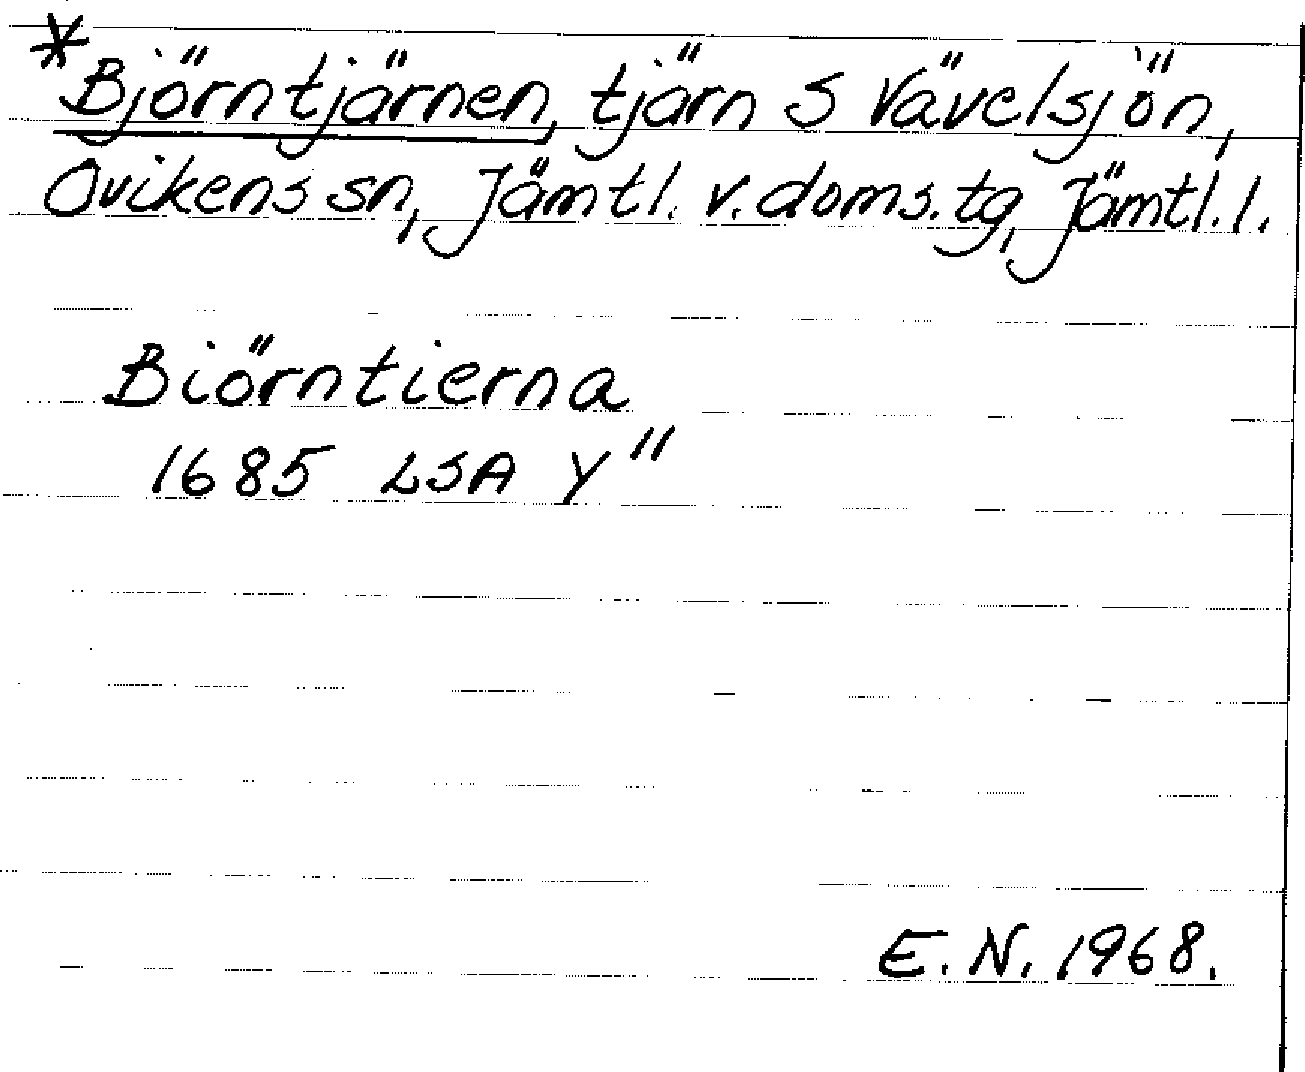 *Björntjärnen, tjärn S Vävelsjön,
Ovikens sn, Jämtl. v. doms. tg, Jämtl. l.
Biörntierna
1685 LSA Y"
E. N. 1968.